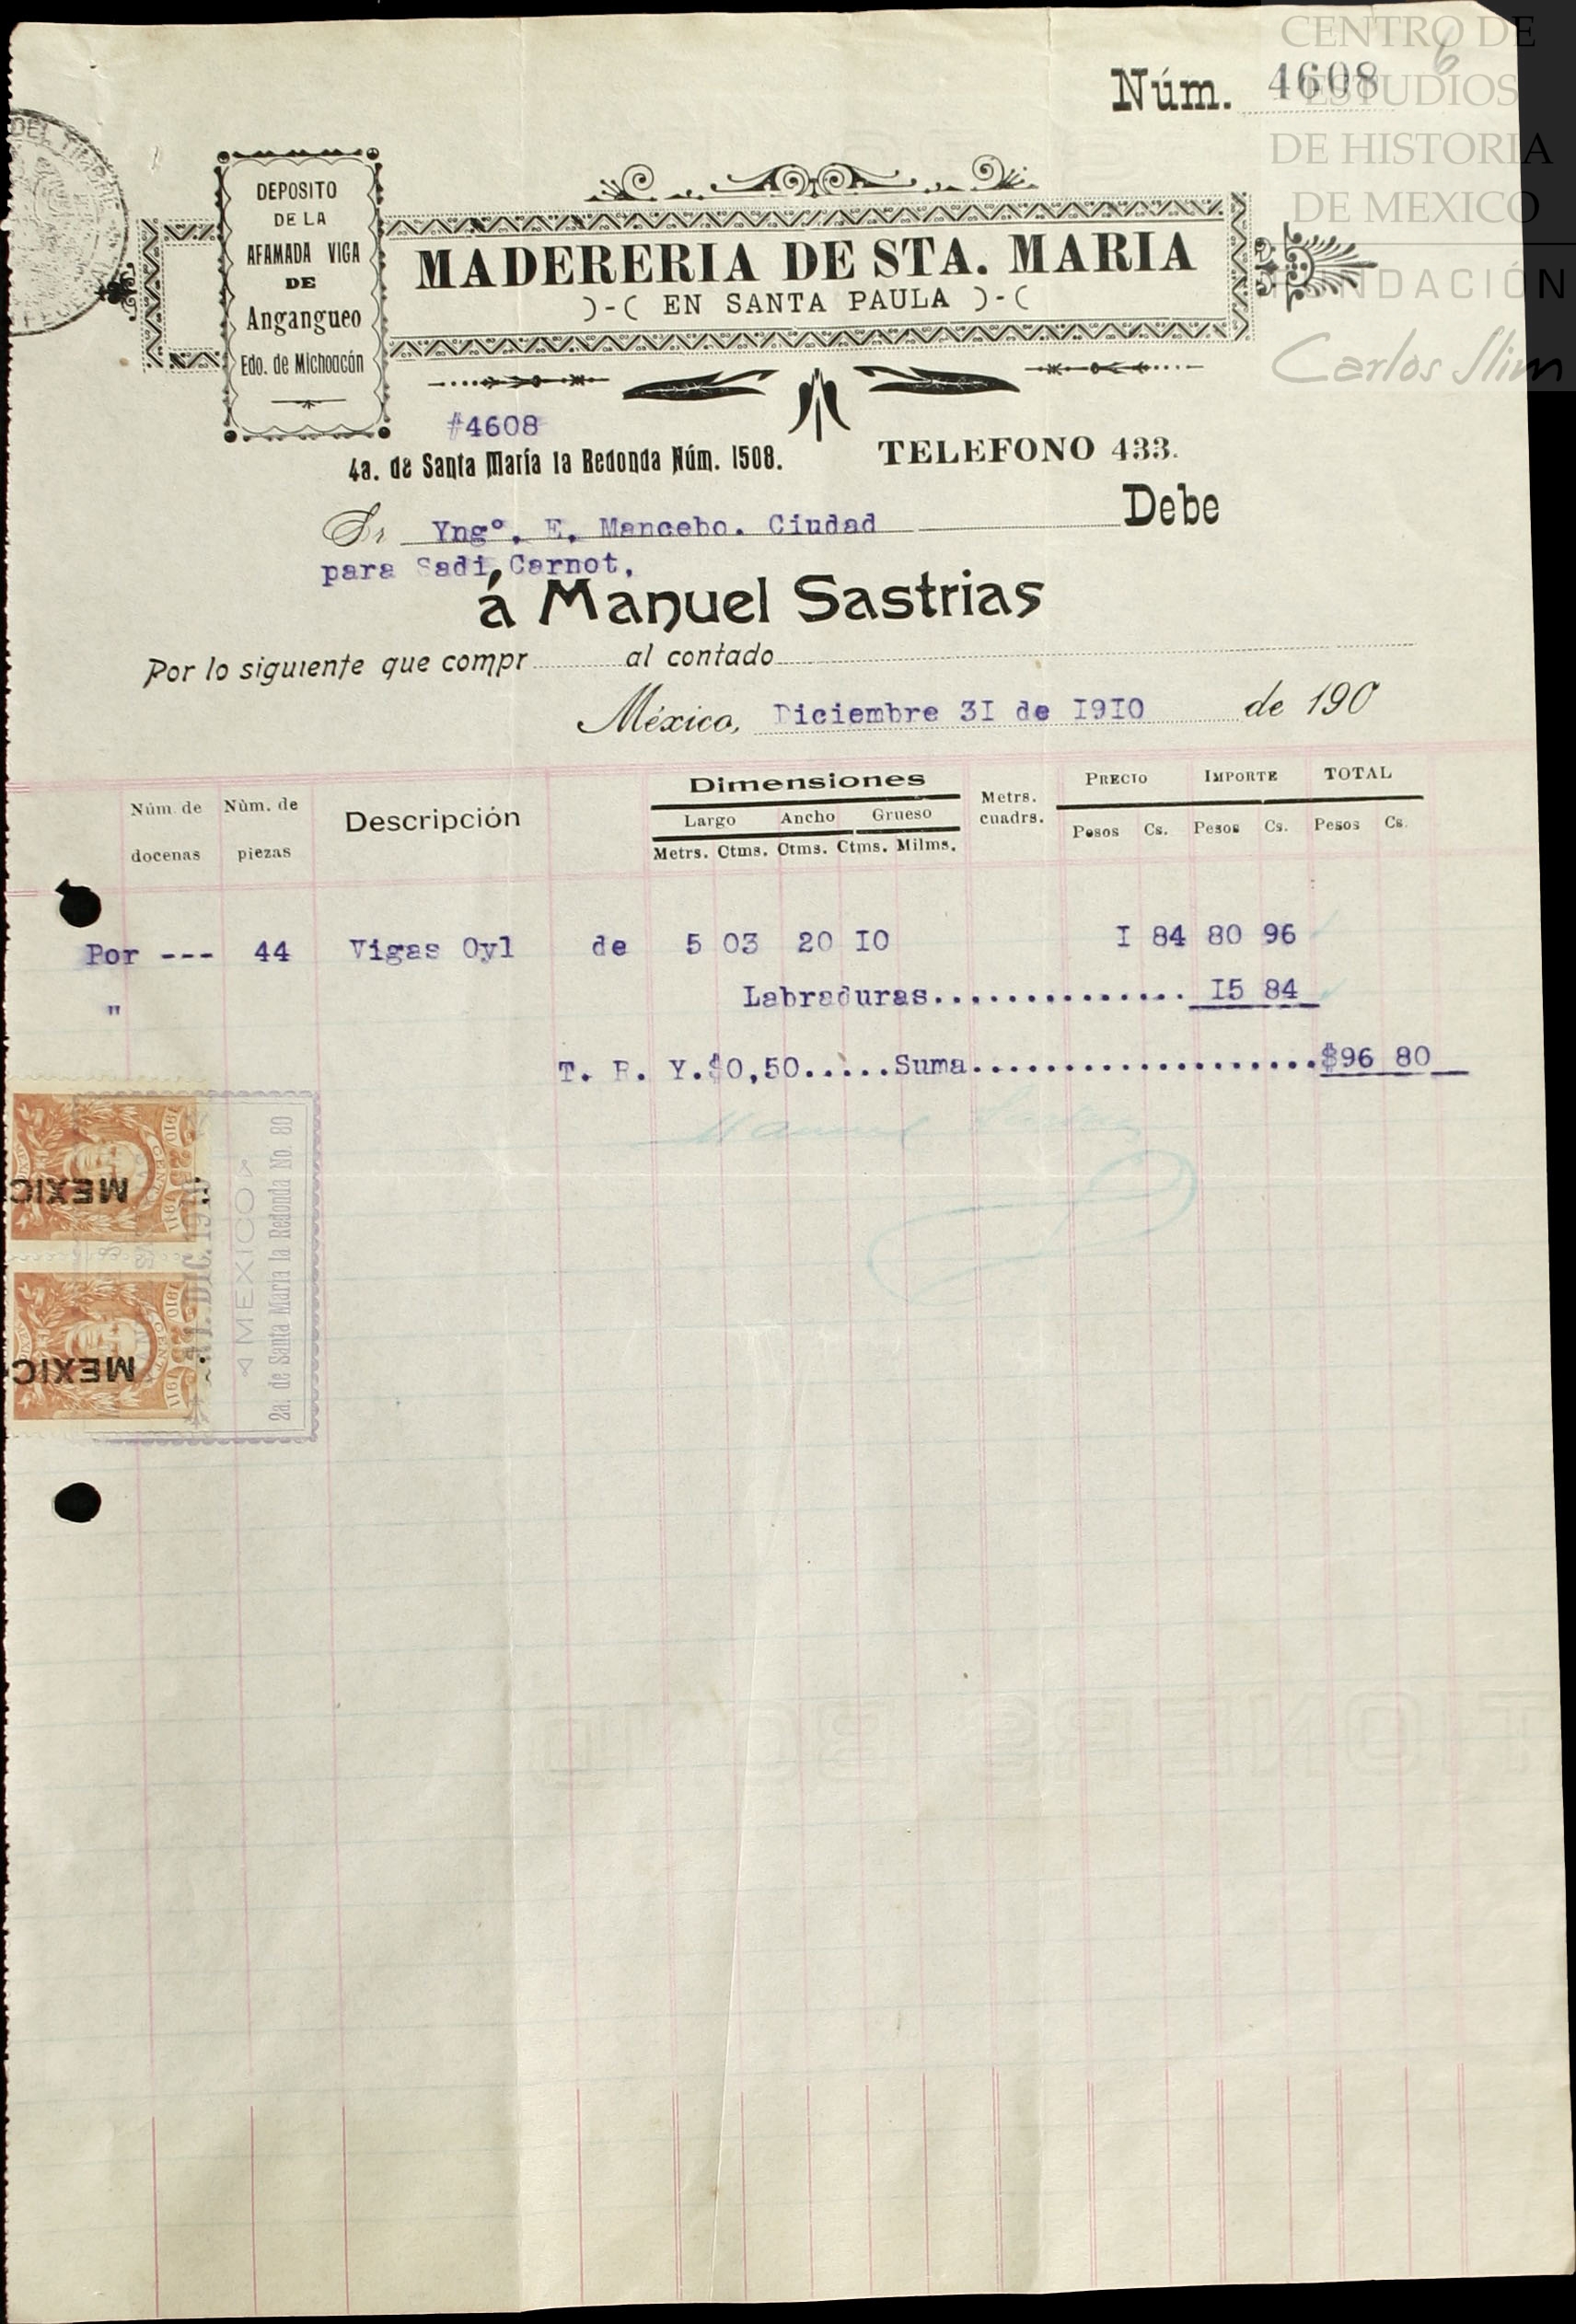 CENTRO DE
ESTUDIOS
DE HISTORIA
DE MEXICO
FUNDACIÓN
Carlos Slim
6
Núm. 4608
DEPOSITO
DE LA
AFAMADA VIGA
DE
Angangueo
Edo. de Michoacán
MADERERIA DE STA. MARIA
)-( EN SANTA PAULA )-(
#4608
4a. de Santa María la Redonda Núm. 1508.
TELEFONO 433.
Sr Yngº. E. Mancebo. Ciudad Debe
para Sadi Carnot.
á Manuel Sastrias
Por lo siguiente que compr al contado
México, Diciembre 3I de I9I0 de 190
Núm. de docenas
Núm. de piezas
Descripción
Dimensiones
Largo Ancho Grueso
Metrs. Ctms. Ctms. Ctms. Milms.
Metrs. cuadrs.
PRECIO IMPORTE TOTAL
Pesos Cs. Pesos Cs. Pesos Cs.
Por --- 44 Vigas Oyl de 5 03 20 I0 I 84 80 96
" Labraduras.............. I5 84
T. R. Y.$0,50.....Suma...................$96 80
Manuel Sastrias
1910 1911
MEXIC
1910 1911
MEXIC
DIC. 19
MEXICO
2a. de Santa Maria la Redonda No. 80